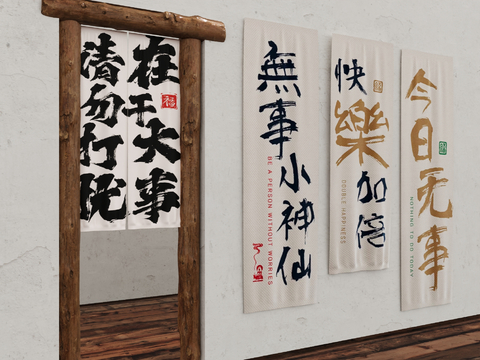 在干大事
请勿打扰
福
無事小神仙
BE A PERSON WITHOUT WORRIES
快樂加倍
DOUBLE HAPPINESS
今日无事
NOTHING TO DO TODAY